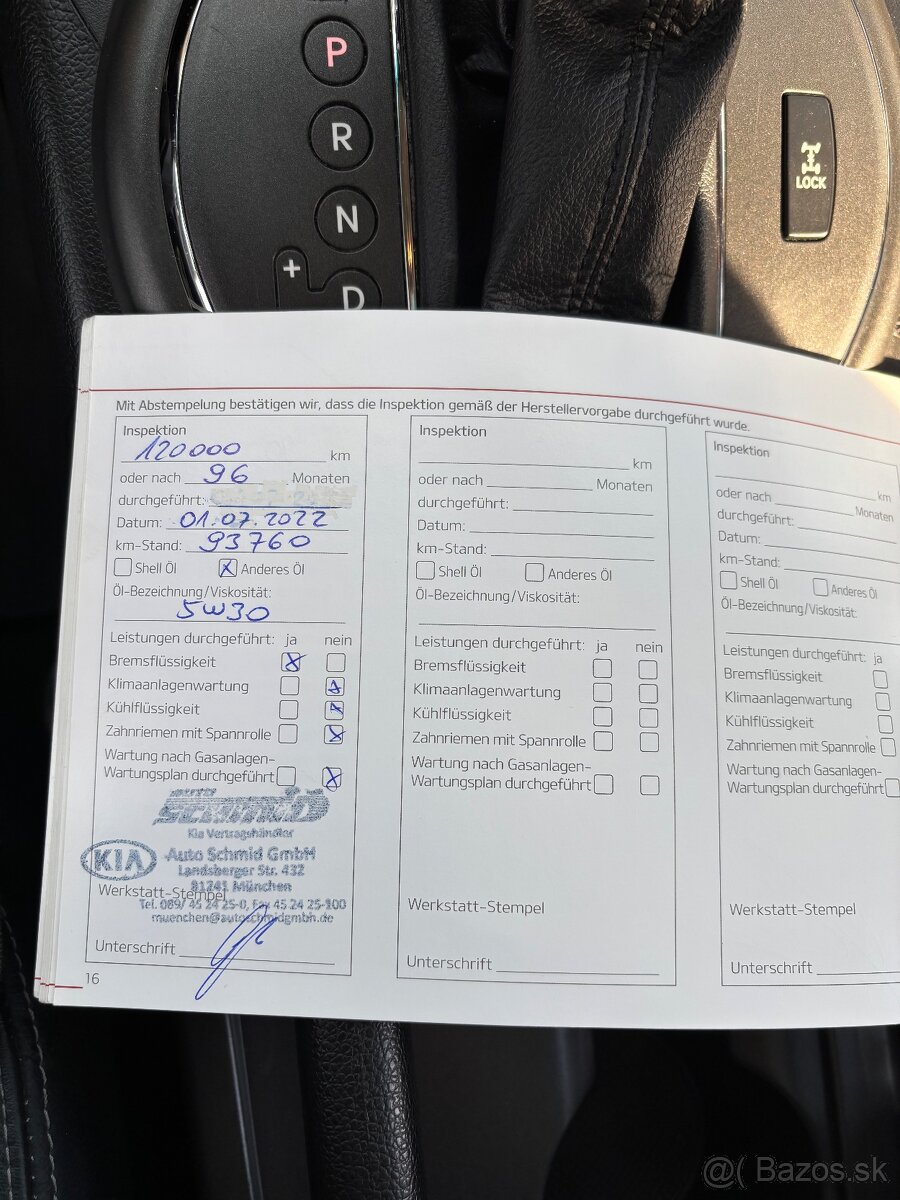 P
R
N
+
D
LOCK
Mit Abstempelung bestätigen wir, dass die Inspektion gemäß der Herstellervorgabe durchgeführt wurde.
Inspektion
120000 km
oder nach 96 Monaten
durchgeführt:
Datum: 01.07.2022
km-Stand: 93760
Shell Öl Anderes Öl
Öl-Bezeichnung/Viskosität:
5W30
Leistungen durchgeführt: ja nein
Bremsflüssigkeit
Klimaanlagenwartung
Kühlflüssigkeit
Zahnriemen mit Spannrolle
Wartung nach Gasanlagen-
Wartungsplan durchgeführt
auto schmid
Kia Vertragshändler
KIA Auto Schmid GmbH
Landsberger Str. 432
81241 München
Werkstatt-Stempel
Tel. 089/ 45 24 25-0, Fax 45 24 25-100
muenchen@autoschmidgmbh.de
Unterschrift
16
Inspektion
km
oder nach Monaten
durchgeführt:
Datum:
km-Stand:
Shell Öl Anderes Öl
Öl-Bezeichnung/Viskosität:
Leistungen durchgeführt: ja nein
Bremsflüssigkeit
Klimaanlagenwartung
Kühlflüssigkeit
Zahnriemen mit Spannrolle
Wartung nach Gasanlagen-
Wartungsplan durchgeführt
Werkstatt-Stempel
Unterschrift
Inspektion
km
oder nach Monaten
durchgeführt:
Datum:
km-Stand:
Shell Öl Anderes Öl
Öl-Bezeichnung/Viskosität:
Leistungen durchgeführt: ja
Bremsflüssigkeit
Klimaanlagenwartung
Kühlflüssigkeit
Zahnriemen mit Spannrolle
Wartung nach Gasanlagen-
Wartungsplan durchgeführt
Werkstatt-Stempel
Unterschrift
@( Bazos.sk